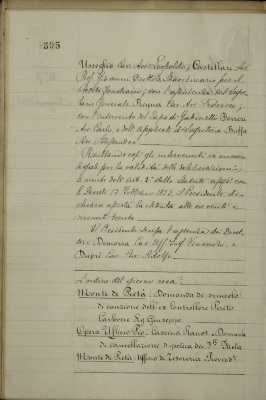 395
Usseglio Cav. Avv. Leopoldo; Castellari
Prof. Giovanni Direttore Straordinario per il
Monte fruttuario; con l'assistenza del Segre-
tario Generale Cav. Avv. Federico;
con l'intervento del Capo di Gabinetto Ferreri
Avv. Carlo, e dell'Applicato di Segreteria Biffa
Avv. Alessandro.
Risultando così gli intervenuti in numero
legale per la validità delle deliberazioni,
a mente dell'art. dello Statuto appr. con
R. Decreto 12 Febbraio 1922, il Presidente di-
chiara aperta la seduta alle ore venti e
minuti trenta.
Il Presidente scusa l'assenza dei Diret-
tori Demorra Cav. Uff. Ing. Vincenzo, e
Dupré Cav. Pietro Adolfo.
L'ordine del giorno reca:
Monte di Pietà: Domanda di svincolo
di cauzione dell'ex Controllore Perito
Carbone Rag. Giuseppe
Opera Ufficio Pio: Caserma Domanda
di cancellazione d'ipoteca dei
Monte di Pietà: Ufficio di Tesoreria